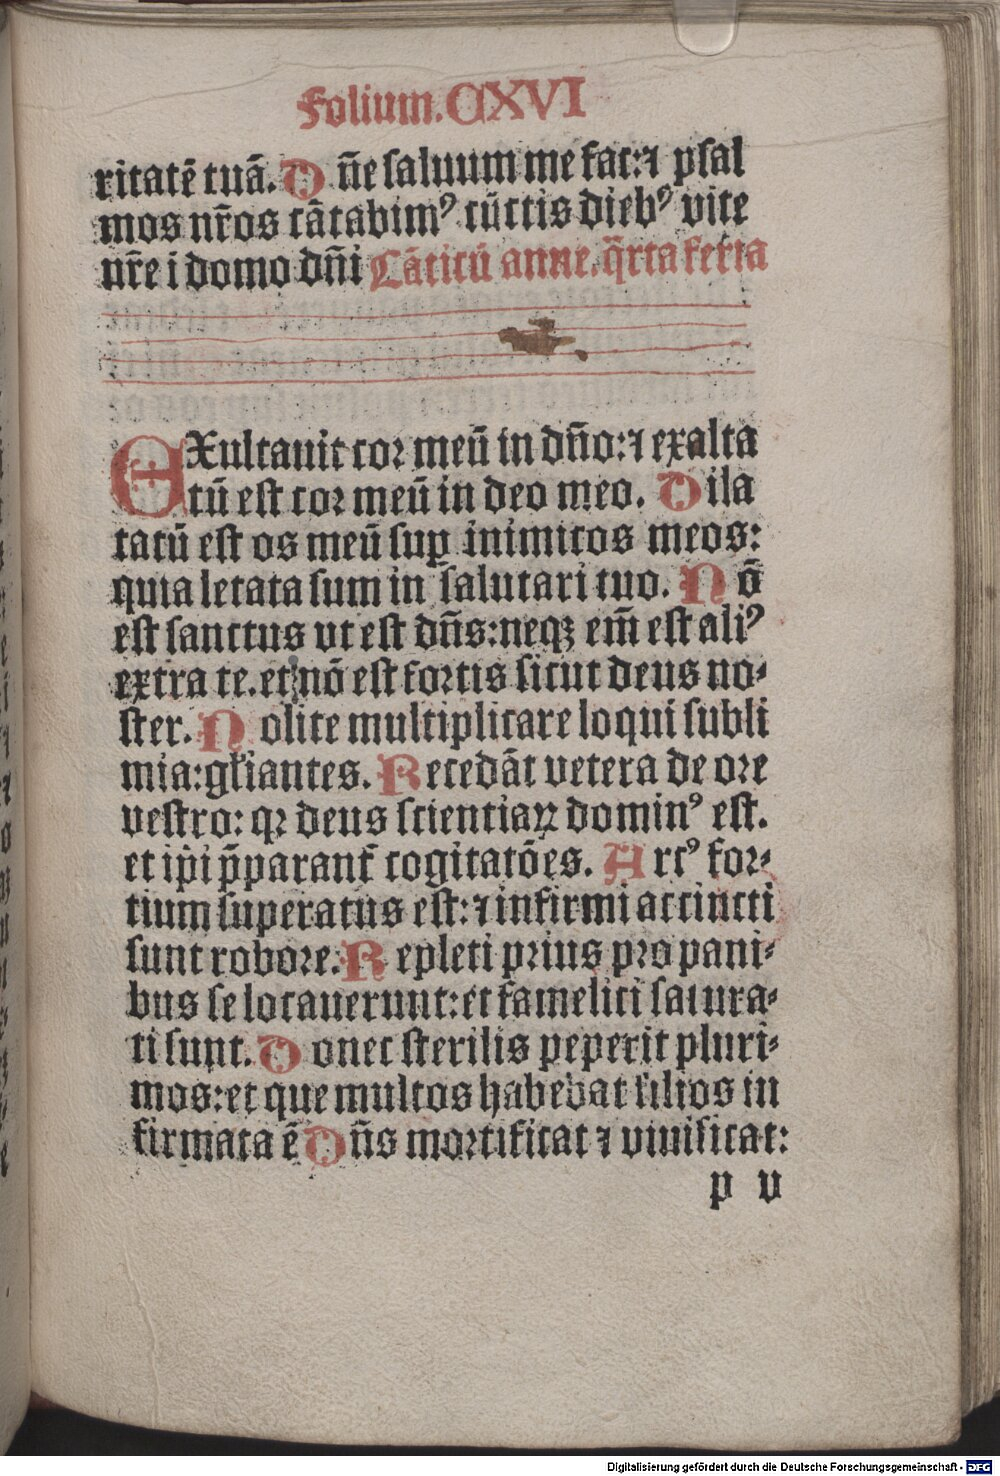 Folium. CXVI
ritatē tuā. D n̄e saluum me fac: ⁊ psal
mos nr̄os cātabimꝰ cūctis diebꝰ vite
nr̄e i domo dn̄i Cāticū anne. q̄rta feria
EXultauit cor meū in dn̄o: ⁊ exalta
tū est cor meū in deo meo. Dila
tatū est os meū suꝑ inimicos meos:
quia letata sum in salutari tuo. Nō
est sanctus vt est dn̄s: neqꝫ em̄ est aliꝰ
extra te. et nō est fortis sicut deus no-
ster. Nolite multiplicare loqui subli
mia: gl̄iantes. Recedāt vetera de ore
vestro: qꝛ deus scientiaꝝ dominꝰ est.
et ip̄i p̄parant᷑ cogitatōes. Arcꝰ for-
tium superatus est: ⁊ infirmi accincti
sunt robore. Repleti prius pro pani-
bus se locauerunt: et famelici satura-
ti sunt. Donec sterilis peperit pluri-
mos: et que multos habebat filios in
firmata ē Dn̄s mortificat ⁊ viuificat:
p v
Digitalisierung gefördert durch die Deutsche Forschungsgemeinschaft - DFG